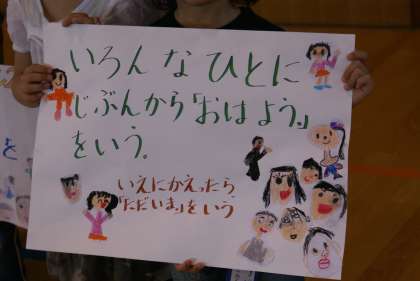 いろんなひとに
じぶんから「おはよう。」
をいう。
いえにかえったら
「ただいま」をいう